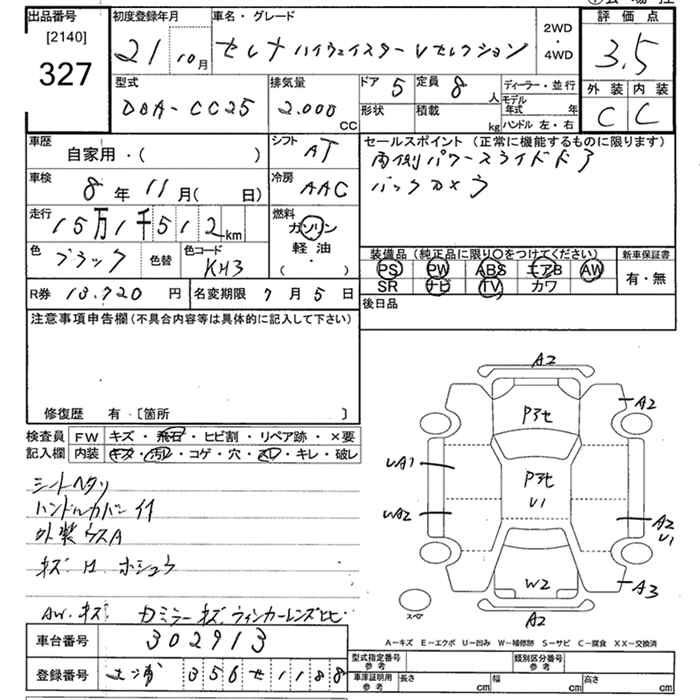 出品番号
[2140]
327
初度登録年月
21 10月
車名・グレード
セレナ ハイウェイスター Vセレクション
2WD
・
4WD
評価点
3.5
外装 内装
C C
型式
DBA-CC25
排気量
2.000
CC
ドア 5
定員 8 人
形状
積載 kg
ディーラー・並行
モデル年式 年
ハンドル 左・右
車歴
自家用・( )
シフト
AT
セールスポイント (正常に機能するものに限ります)
両側パワースライドドア
バックカメラ
車検
8年11月( 日)
冷房
AAC
走行
15万1千512km
燃料
ガソリン
軽油
( ・ )
色 ブラック
色替
色コード
KH3
装備品 (純正品に限り○をつけてください)
PS PW ABS エアB AW
SR ナビ TV カワ
新車保証書
有・無
R券 13.720円
名変期限 7月5日
後日品
注意事項申告欄 (不具合内容等は具体的に記入して下さい)
修復歴 有・[箇所 ]
検査員
記入欄
FW キズ・飛石・ヒビ割・リペア跡・×要
内装 キズ・汚レ・コゲ・穴・スレ・キレ・破レ
シートヘタリ
ハンドルカバー付
外装ウスA
キズ H ホシュウ
AW.キズ ドミラーキズ ウィンカーレンズヒビ
A2
A2
Pスモ
UA1
Pスモ
U1
UA2
A2
U1
W2
A3
A2
スペア
A-キズ E-エクボ U-凹み W-補修跡 S-サビ C-腐食 XX-交換済
車台番号 302913
登録番号 土浦 356 せ 1188
型式指定番号
参考
類別区分番号
参考
車庫証明用
参考
長さ cm
幅 cm
高さ cm